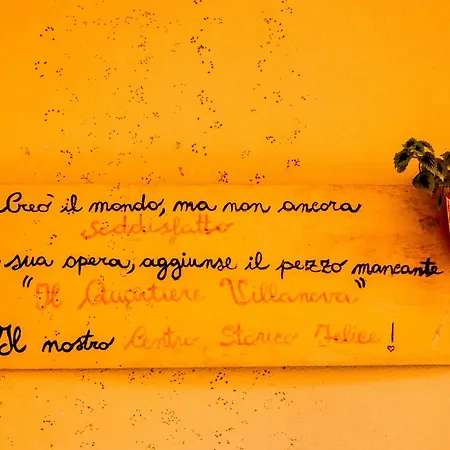 Creò il mondo, ma non ancora
soddisfatto
sua opera, aggiunse il pezzo mancante
"Il Quartiere Villanova"
Il nostro Centro Storico Felice!